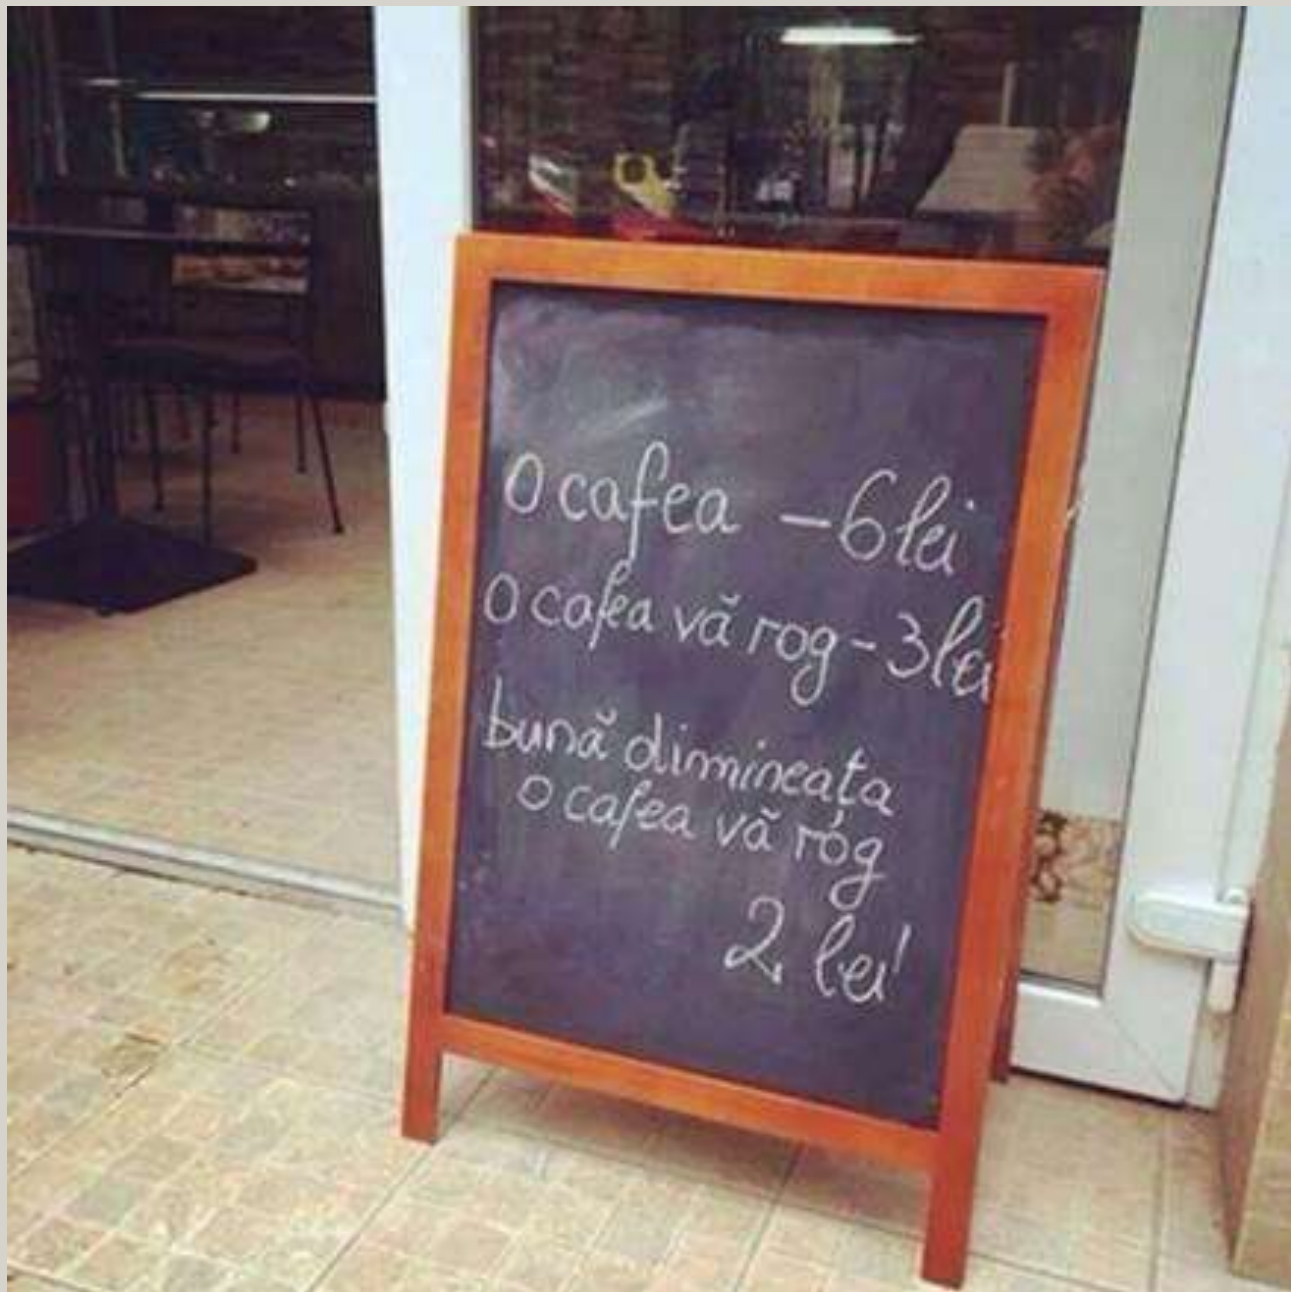 O cafea - 6 lei
O cafea vă rog - 3 lei
bună dimineața
o cafea vă rog
2 lei!